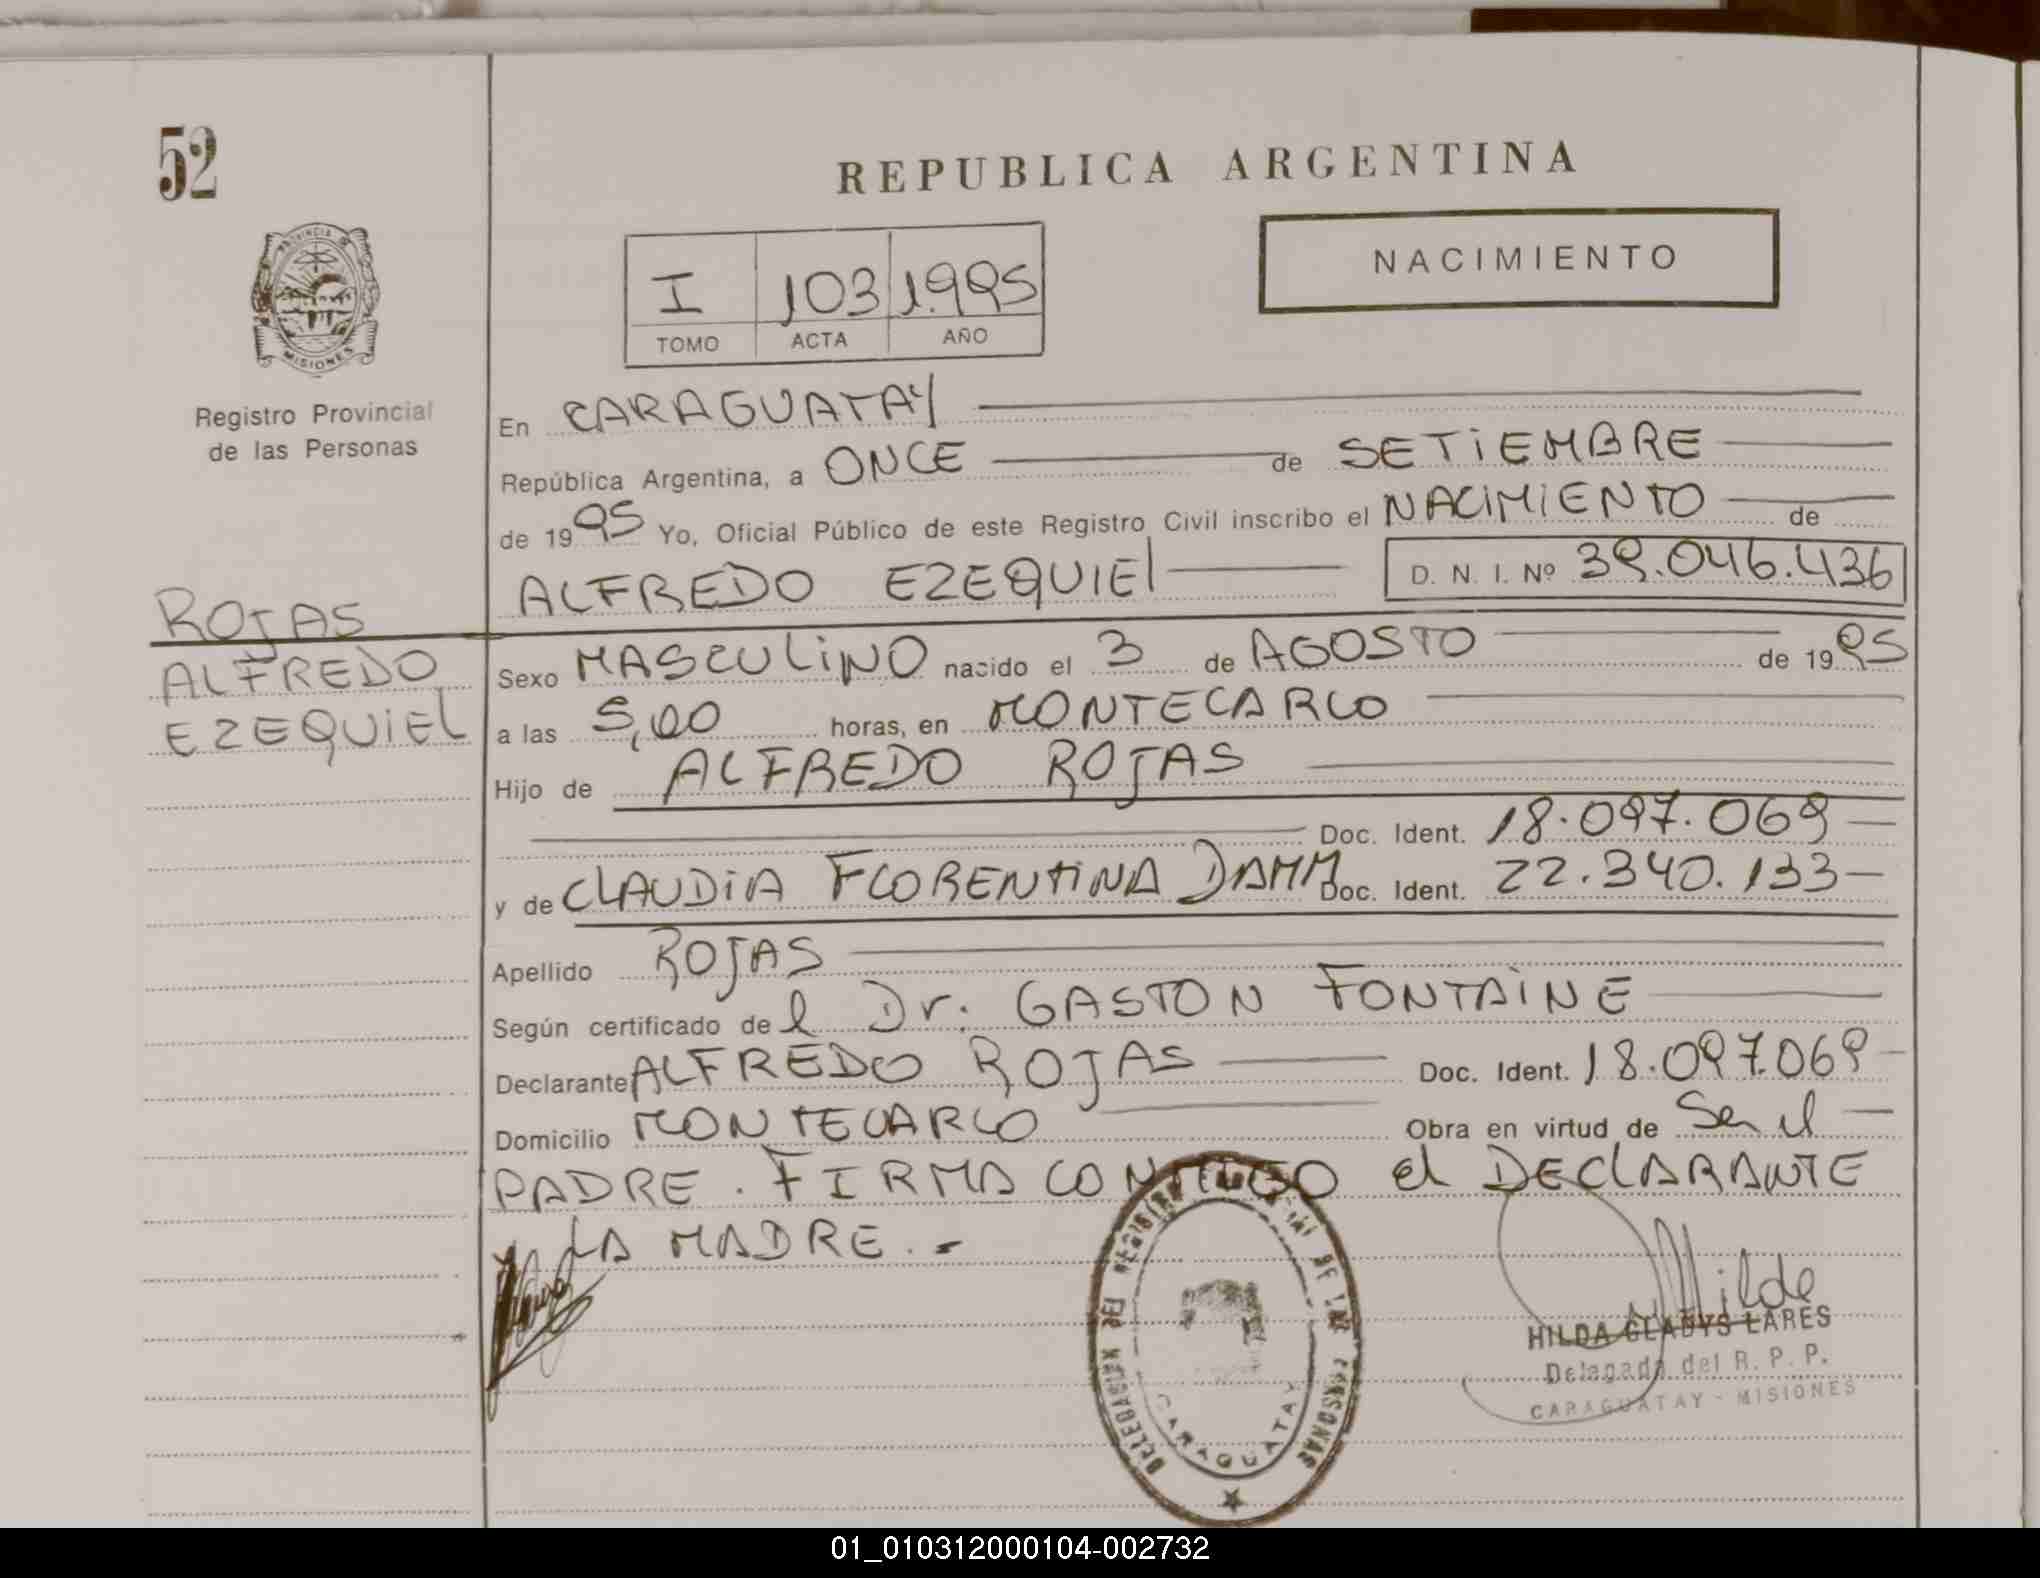 52
REPUBLICA ARGENTINA
PROVINCIA DE
MISIONES
Registro Provincial
de las Personas
I 103 1.995
TOMO ACTA AÑO
NACIMIENTO
En CARAGUATAY
República Argentina, a ONCE de SETIEMBRE
de 1995 Yo, Oficial Público de este Registro Civil inscribo el NACIMIENTO de
ALFREDO EZEQUIEL D. N. I. Nº 39.046.436
ROJAS
ALFREDO
EZEQUIEL
Sexo MASCULINO nacido el 3 de AGOSTO de 1995
a las 5,00 horas, en MONTECARLO
Hijo de ALFREDO ROJAS
Doc. Ident. 18.097.069
y de CLAUDIA FLORENTINA DAMM Doc. Ident. 22.340.133
Apellido ROJAS
Según certificado de l Dr. GASTON FONTAINE
Declarante ALFREDO ROJAS Doc. Ident. 18.097.069
Domicilio MONTECARLO Obra en virtud de Ser el
PADRE. FIRMA CONMIGO el DECLARANTE
LA MADRE.-
DELEGACION DEL REGISTRO DE LAS PERSONAS
CARAGUATAY
Hilda
HILDA GLADYS LARES
Delegada del R. P. P.
CARAGUATAY - MISIONES
01_010312000104-002732